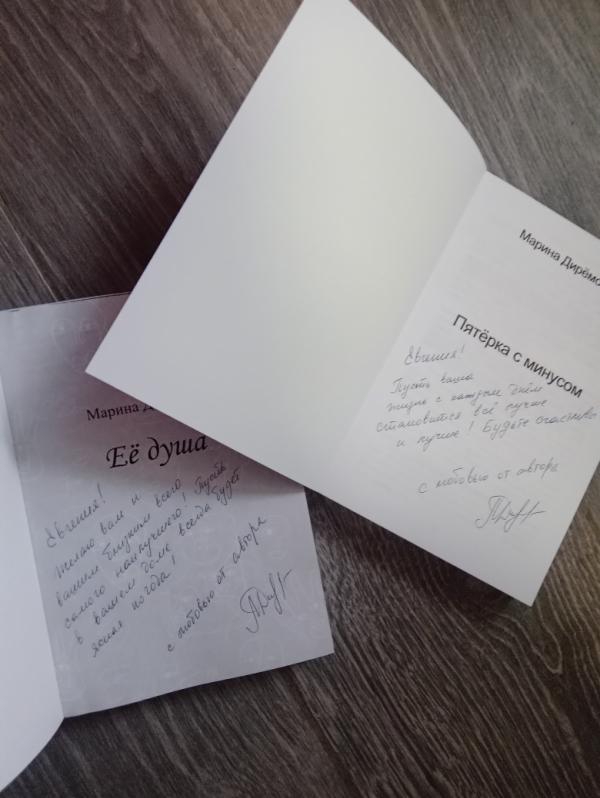 Марина Дирёмо
Пятёрка с минусом
Евгения!
Пусть ваша
жизнь с каждым днём
становится всё лучше
и лучше! Будьте счастливо
с любовью от автора
Марина Д
Её душа
Евгения!
Желаю вам и
вашим близким всего
самого наилучшего! Пусть
в вашем доме всегда будет
ясная погода!
с любовью от автора